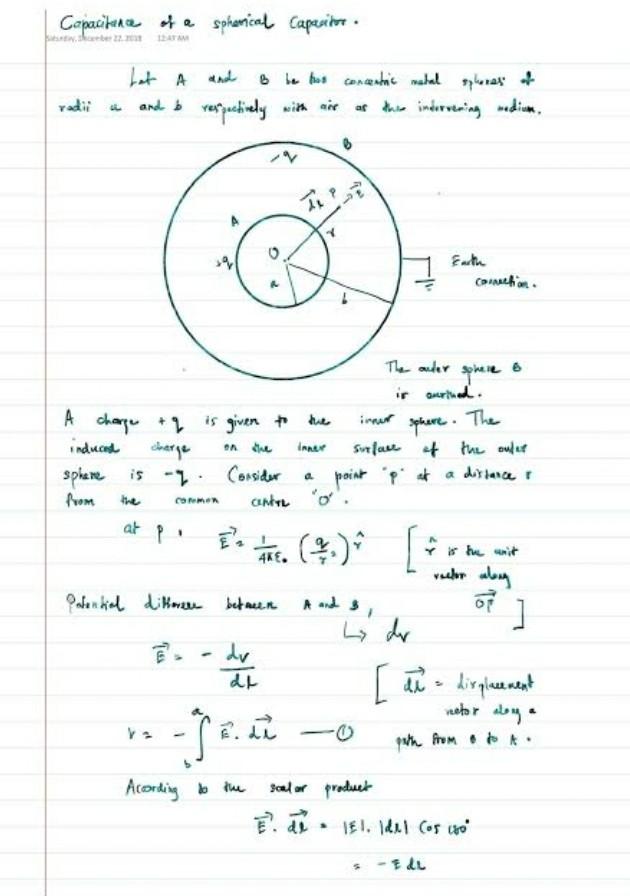 Capacitance of a spherical Capacitor.
Saturday, December 22, 2018 12:47 AM
Let A and B be two concentric metal spheres of
radii a and b respectively with air as the intervening medium.
B
-q
dl P → E
A
r
O
+q
a
b
Earth
connection.
The outer sphere B
is earthed.
A charge +q is given to the inner sphere. The
induced charge on the inner surface of the outer
sphere is -q. Consider a point 'p' at a distance r
from the common centre 'O'.
at p, E⃗ = 1/4πε₀ (q/r²) r̂ [ r̂ is the unit
vector along
OP⃗ ]
Potential difference between A and B,
↳ dv
E⃗ = - dv/dl
[ dl⃗ = displacement
vector along a
path from B to A.
v = - ∫_b^a E⃗. dl⃗ —①
According to the scalar product
E⃗. dl⃗ = |E|. |dl| Cos 180°
= -E dl